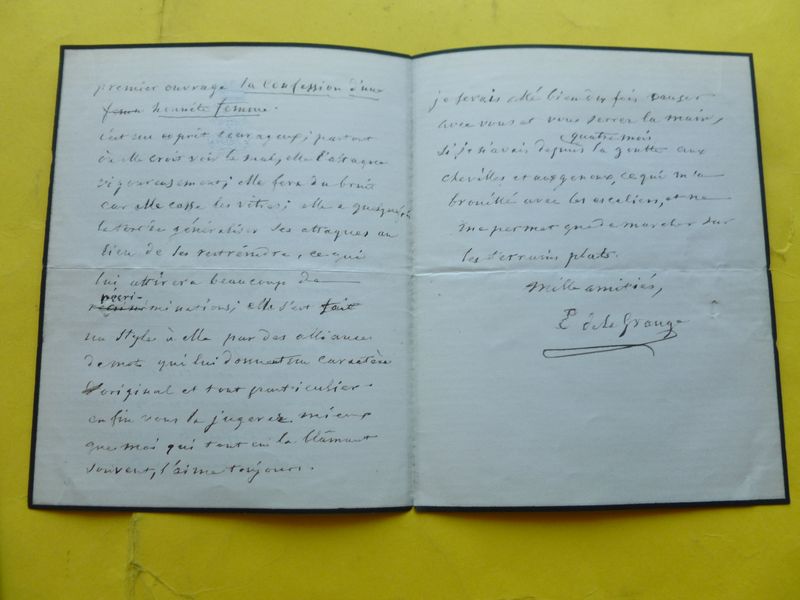 premier ouvrage la confession d'une
femme honnête femme.
c'est un esprit courageux; partout
où elle croit voir le mal, elle l'attaque
vigoureusement; elle fera du bruit
car elle casse les vitres; elle a quelquefois
le tort de généraliser ses attaques au
lieu de les restreindre, ce qui
lui attirera beaucoup de
récri-
minations; elle s'est fait
un style à elle par des alliances
de mots qui lui donnent un caractère
original et tout particulier
enfin vous la jugerez mieux
que moi qui tout en la blâmant
souvent, l'aime toujours.
je serais allé bien des fois causer
avec vous et vous serrer la main,
quatre mois
si je n'avais depuis la goutte aux
chevilles et aux genoux, ce qui m'a
brouillé avec les escaliers, et ne
me permet que de marcher sur
les terrains plats.
mille amitiés,
E de La Grange